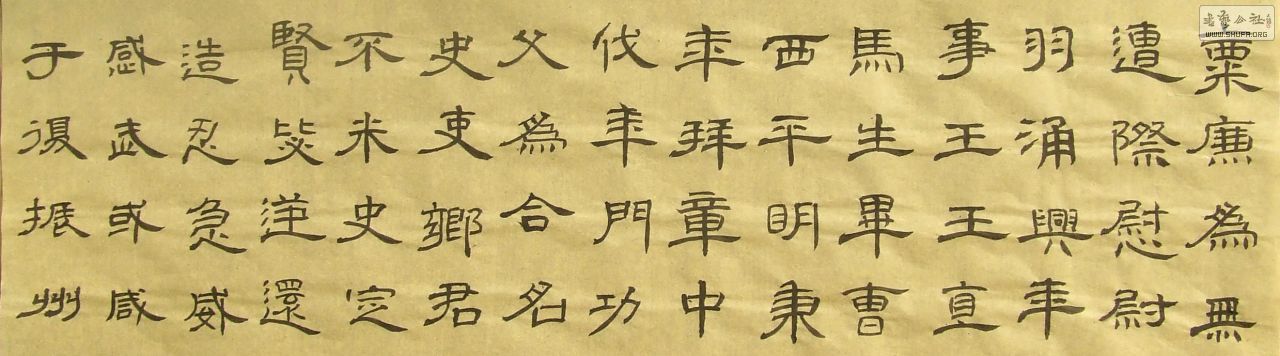 粟廉為無
遭際慰尉
羽涌興年
事王王直
馬生畢曹
西平明秉
年拜章中
伐年門功
父為合名
史吏鄉君
不米史定
賢逆還
造忍急威
感武或咸
于復振州
书艺公社
WWW.SHUFA.ORG